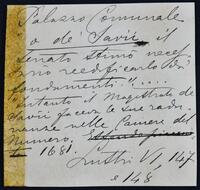 Palazzo Comunale
"o de' Savii il
Senato stimò neces
sario reedificarlo da'
fondamenti"....
"intanto il Magistrato de'
Savii faceva le sue radu
nanze nelle Camere del
Numero.
1681.
VI, 147
e 148